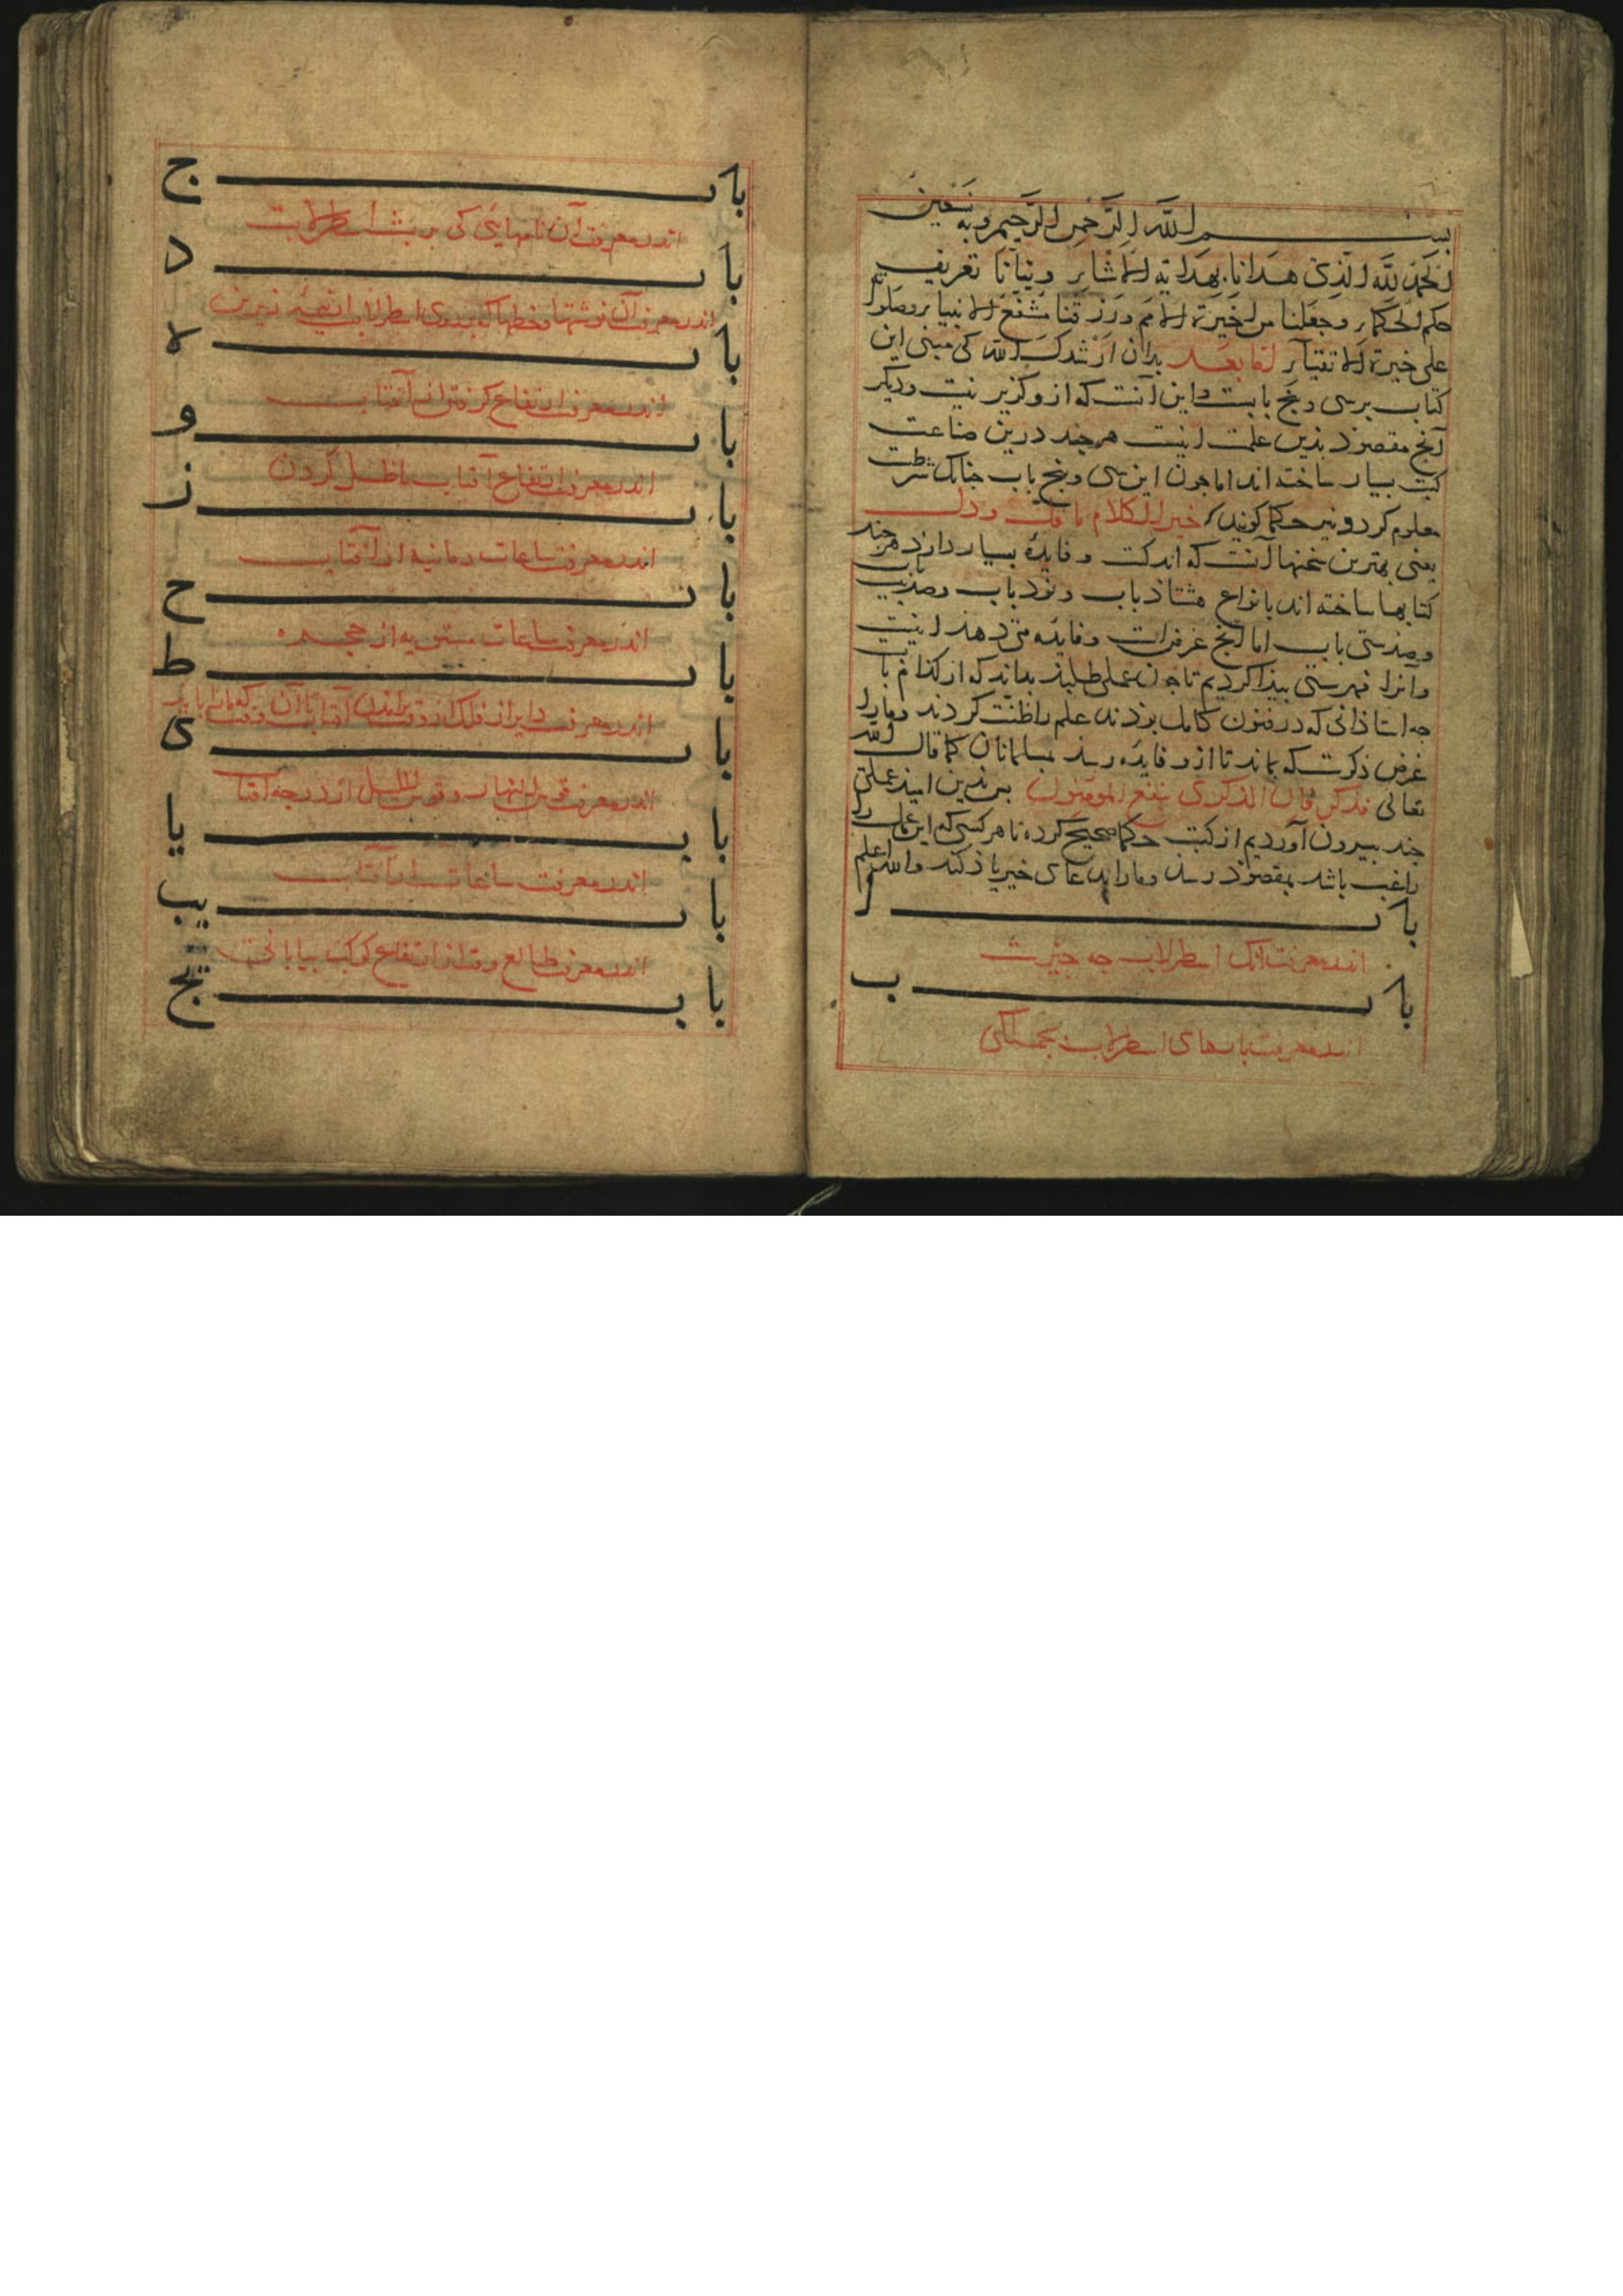 بسم الله الرحمن الرحيم وبه نستعين
الحمد لله الذی هدانا بهداية الاشاير و نبانا تعريف
حكم الحكماير وجعلنا من خيرة الامم ورزقنا مشفع الانبيا ير وصلواته
علی خيرة الاتقيآير اما بعد بدان ارشدك الله کی مبنی اين
کتاب بر سی و پنج بابست و اين آنست که ازو گزير نيست و ديگر
آنج مقصوذ بذين علمت اينست هر چند درين صناعت
کتب بسيار ساخته اند اما جون اين سی و پنج باب جنانک شرطست
معلوم کردو نيز حکما گويند که خير الكلام ما قل و دل
يعنی بهترين سخنها آنست که اندکست و فايدۀ بسيار دارذ هر چند
کتابها ساخته اند بانواع هشتاذ باب و نوذ باب و صذ بيست باب
و صذ سی باب اما آنج غرض است و فايده می دهذ اينست
و آنرا فهرستی بيذا کرديم تا جون عملی طلبذ بداند که از کذام باب
جه استاذانی که در فنون کامل بوذند علم را ظنت کردند و مارا
غرض ذکرست که بماند تا ازو فايده رسذ بمسلمانان کما قال الله
تعالی فذكر فان الذكری تنفع المومنين برين اميذ عملی
جند بيرون آورديم از کتب حکما صحيح کرده تا هر کسی که اين علم را
راغب باشد بمقصوذ رسذ و مارا بدعای خير ياذ کند والله اعلم
باب ا
اندر معرفت آنک اسطرلاب جه چيزست
باب ب
اندر معرفت بابهای اسطرلاب بجملگی
باب ج
اندر معرفت آن نامهايی کی بر پشت اسطرلابست
باب د
اندر معرفت آن نوشتها و خطها که بر روی اسطرلاب
باب ه
اندر معرفت ارتفاع گرفتن از آفتاب
باب و
اندر معرفت ارتفاع آفتاب با ظل کردن
باب ز
اندر معرفت ساعات زمانيه از آفتاب
باب ح
اندر معرفت ساعات مستويه از حجره
باب ط
اندر معرفت داير از فلک از وقت
باب ی
اندر معرفت قوس النهار و قوس الليل از درجه آفتاب
باب يا
اندر معرفت ساعات از آفتاب
باب يب
اندر معرفت طالع وقت از ارتفاع کوکب بيابانی
باب يج